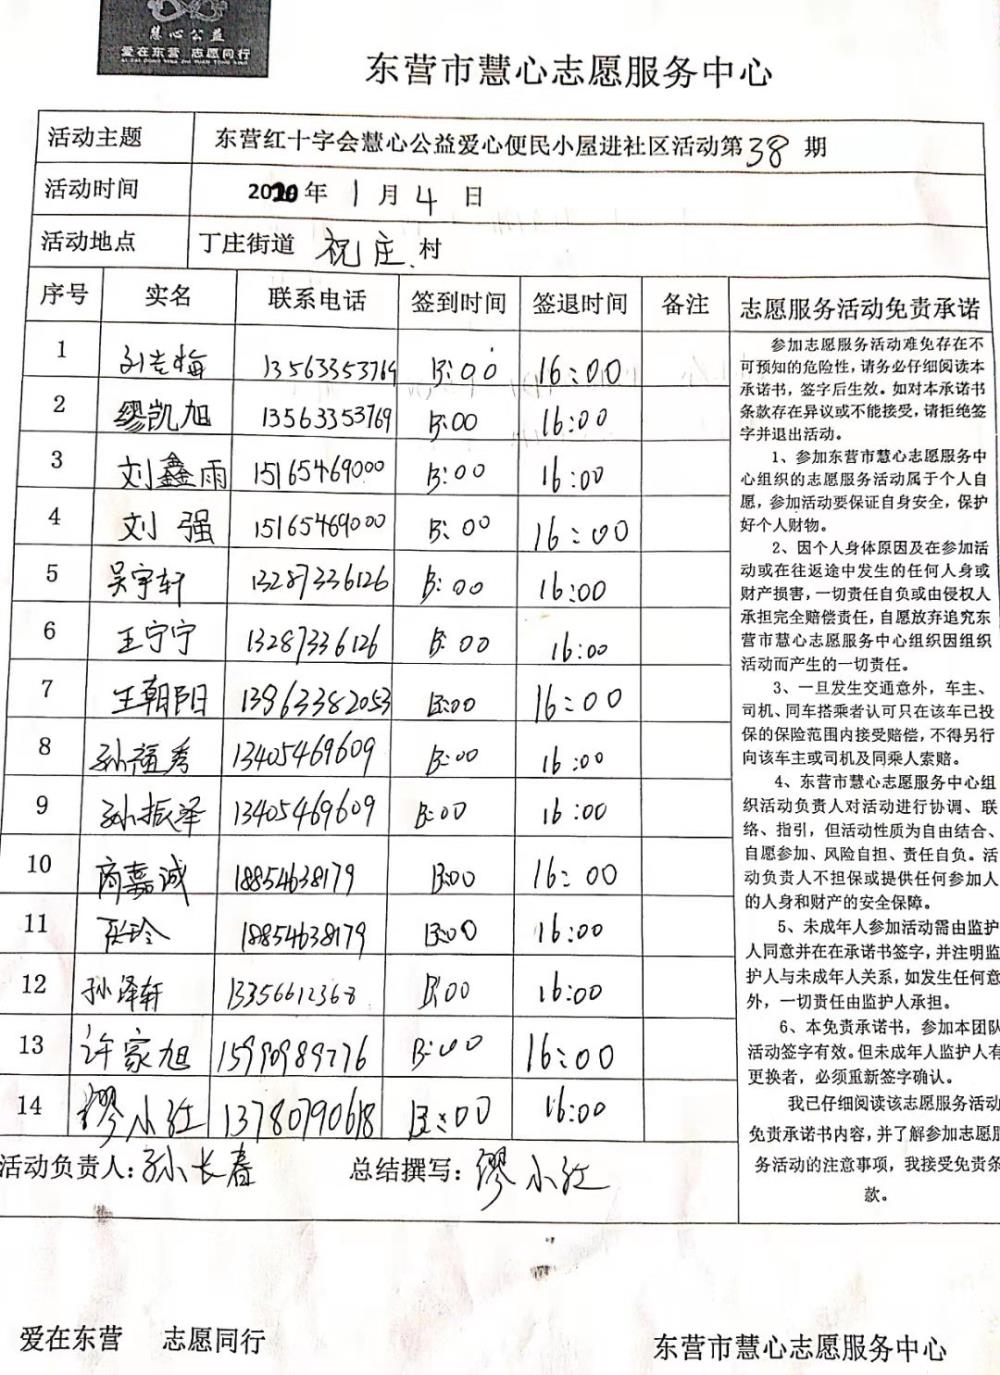 慧心公益
爱在东营 志愿同行
东营市慧心志愿服务中心
活动主题 东营红十字会慧心公益爱心便民小屋进社区活动第38期
活动时间 2020年 1月4日
活动地点 丁庄街道 祝庄村
序号 实名 联系电话 签到时间 签退时间 备注
1 刘志梅 13563353769 13:00 16:00
2 缪凯旭 13563353769 13:00 16:00
3 刘鑫雨 15165469000 13:00 16:00
4 刘强 15165469000 13:00 16:00
5 吴宇轩 13287336126 13:00 16:00
6 王宁宁 13287336126 13:00 16:00
7 王朝阳 13963382053 13:00 16:00
8 孙福秀 13405469609 13:00 16:00
9 孙振泽 13405469609 13:00 16:00
10 商嘉诚 18854638179 13:00 16:00
11 张玲 18854638179 13:00 16:00
12 孙泽轩 13356612368 13:00 16:00
13 许家旭 15990989776 13:00 16:00
14 缪小红 13780790618 13:00 16:00
活动负责人:孙长春 总结撰写:缪小红
志愿服务活动免责承诺
参加志愿服务活动难免存在不
可预知的危险性，请务必仔细阅读本
承诺书，签字后生效。如对本承诺书
条款存在异议或不能接受，请拒绝签
字并退出活动。
1、参加东营市慧心志愿服务中
心组织的志愿服务活动属于个人自
愿，参加活动要保证自身安全，保护
好个人财物。
2、因个人身体原因及在参加活
动或在往返途中发生的任何人身或
财产损害，一切责任自负或由侵权人
承担完全赔偿责任，自愿放弃追究东
营市慧心志愿服务中心组织因组织
活动而产生的一切责任。
3、一旦发生交通意外，车主、
司机、同车搭乘者认可只在该车已投
保的保险范围内接受赔偿，不得另行
向该车主或司机及同乘人索赔。
4、东营市慧心志愿服务中心组
织活动负责人对活动进行协调、联
络、指引，但活动性质为自由结合、
自愿参加、风险自担、责任自负。活
动负责人不担保或提供任何参加人
的人身和财产的安全保障。
5、未成年人参加活动需由监护
人同意并在在承诺书签字，并注明监
护人与未成年人关系，如发生任何意
外，一切责任由监护人承担。
6、本免责承诺书，参加本团队
活动签字有效。但未成年人监护人有
更换者，必须重新签字确认。
我已仔细阅读该志愿服务活动
免责承诺书内容，并了解参加志愿服
务活动的注意事项，我接受免责条
款。
爱在东营 志愿同行
东营市慧心志愿服务中心